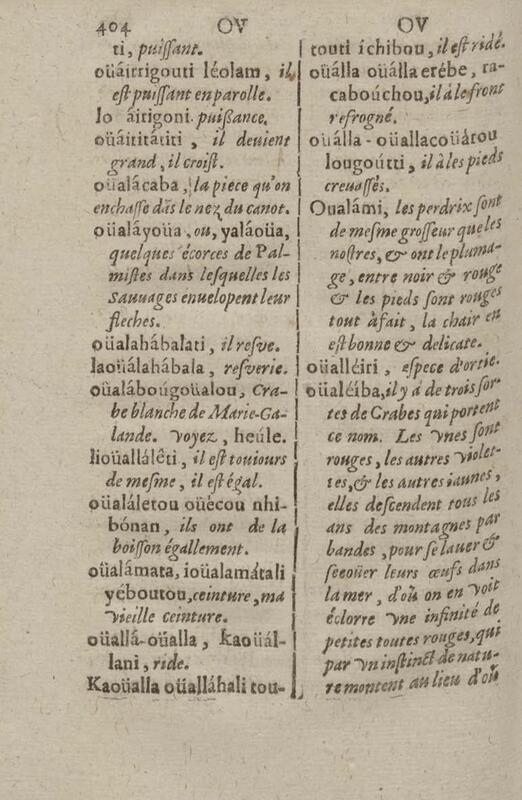 404 OV OV
ti, puiſſant.
oüáitrigouti léolam, il
eſt puiſſant en parolle.
Io áitigoni. puißance.
oüáititátiti, il deuient
grand, il croiſt.
oüalácaba, la piece qu'on
enchaſſe dãs le nez du canot.
oüaláyoüa, ou, yaláoüa,
quelques écorces de Pal-
miſtes dans leſquelles les
Sauuages enuelopent leur
fleches.
oüalahábalati, il reſve.
laoüálahábala, reſverie.
oüalábougoüalou, Cra-
be blanche de Marie-Ga-
lande. Voyez, heúle.
lioüalláléti, il eſt touiours
de meſme, il eſt égal.
oüaláletou oüécou nhi-
bónan, ils ont de la
boiſſon égallement.
oüalámata, ioüalamátali
yéboutou, ceinture, ma
vieille ceinture.
oüallá-oüalla, Kaoüál-
lani, ride.
Kaoüalla oüalláhali tou-
touti íchibou, il eſt ridé.
oüálla oüálla erébe, ta-
caboúchou, il à le front
refrogné.
oüálla-oüallacoüátou
lougoútti, il à les pieds
creuaſſés.
Oualámi, les perdrix ſont
de meſme groſſeur que les
noſtres, & ont le pluma-
ge, entre noir & rouge
& les pieds ſont rouges
tout àfait, la chair en
eſt bonne & delicate.
oüalléiri, eſpece d'ortie.
oüaléiba, il y à de trois ſor-
tes de Crabes qui portent
ce nom. Les vnes ſont
rouges, les autres violet-
tes, & les autres iaunes,
elles deſcendent tous les
ans des montagnes par
bandes, pour ſe lauer &
ſecoüer leurs œufs dans
la mer, d'où on en voit
éclorre vne infinité de
petites toutes rouges, qui
par vn inſtinct de natu-
re montent au lieu d'où